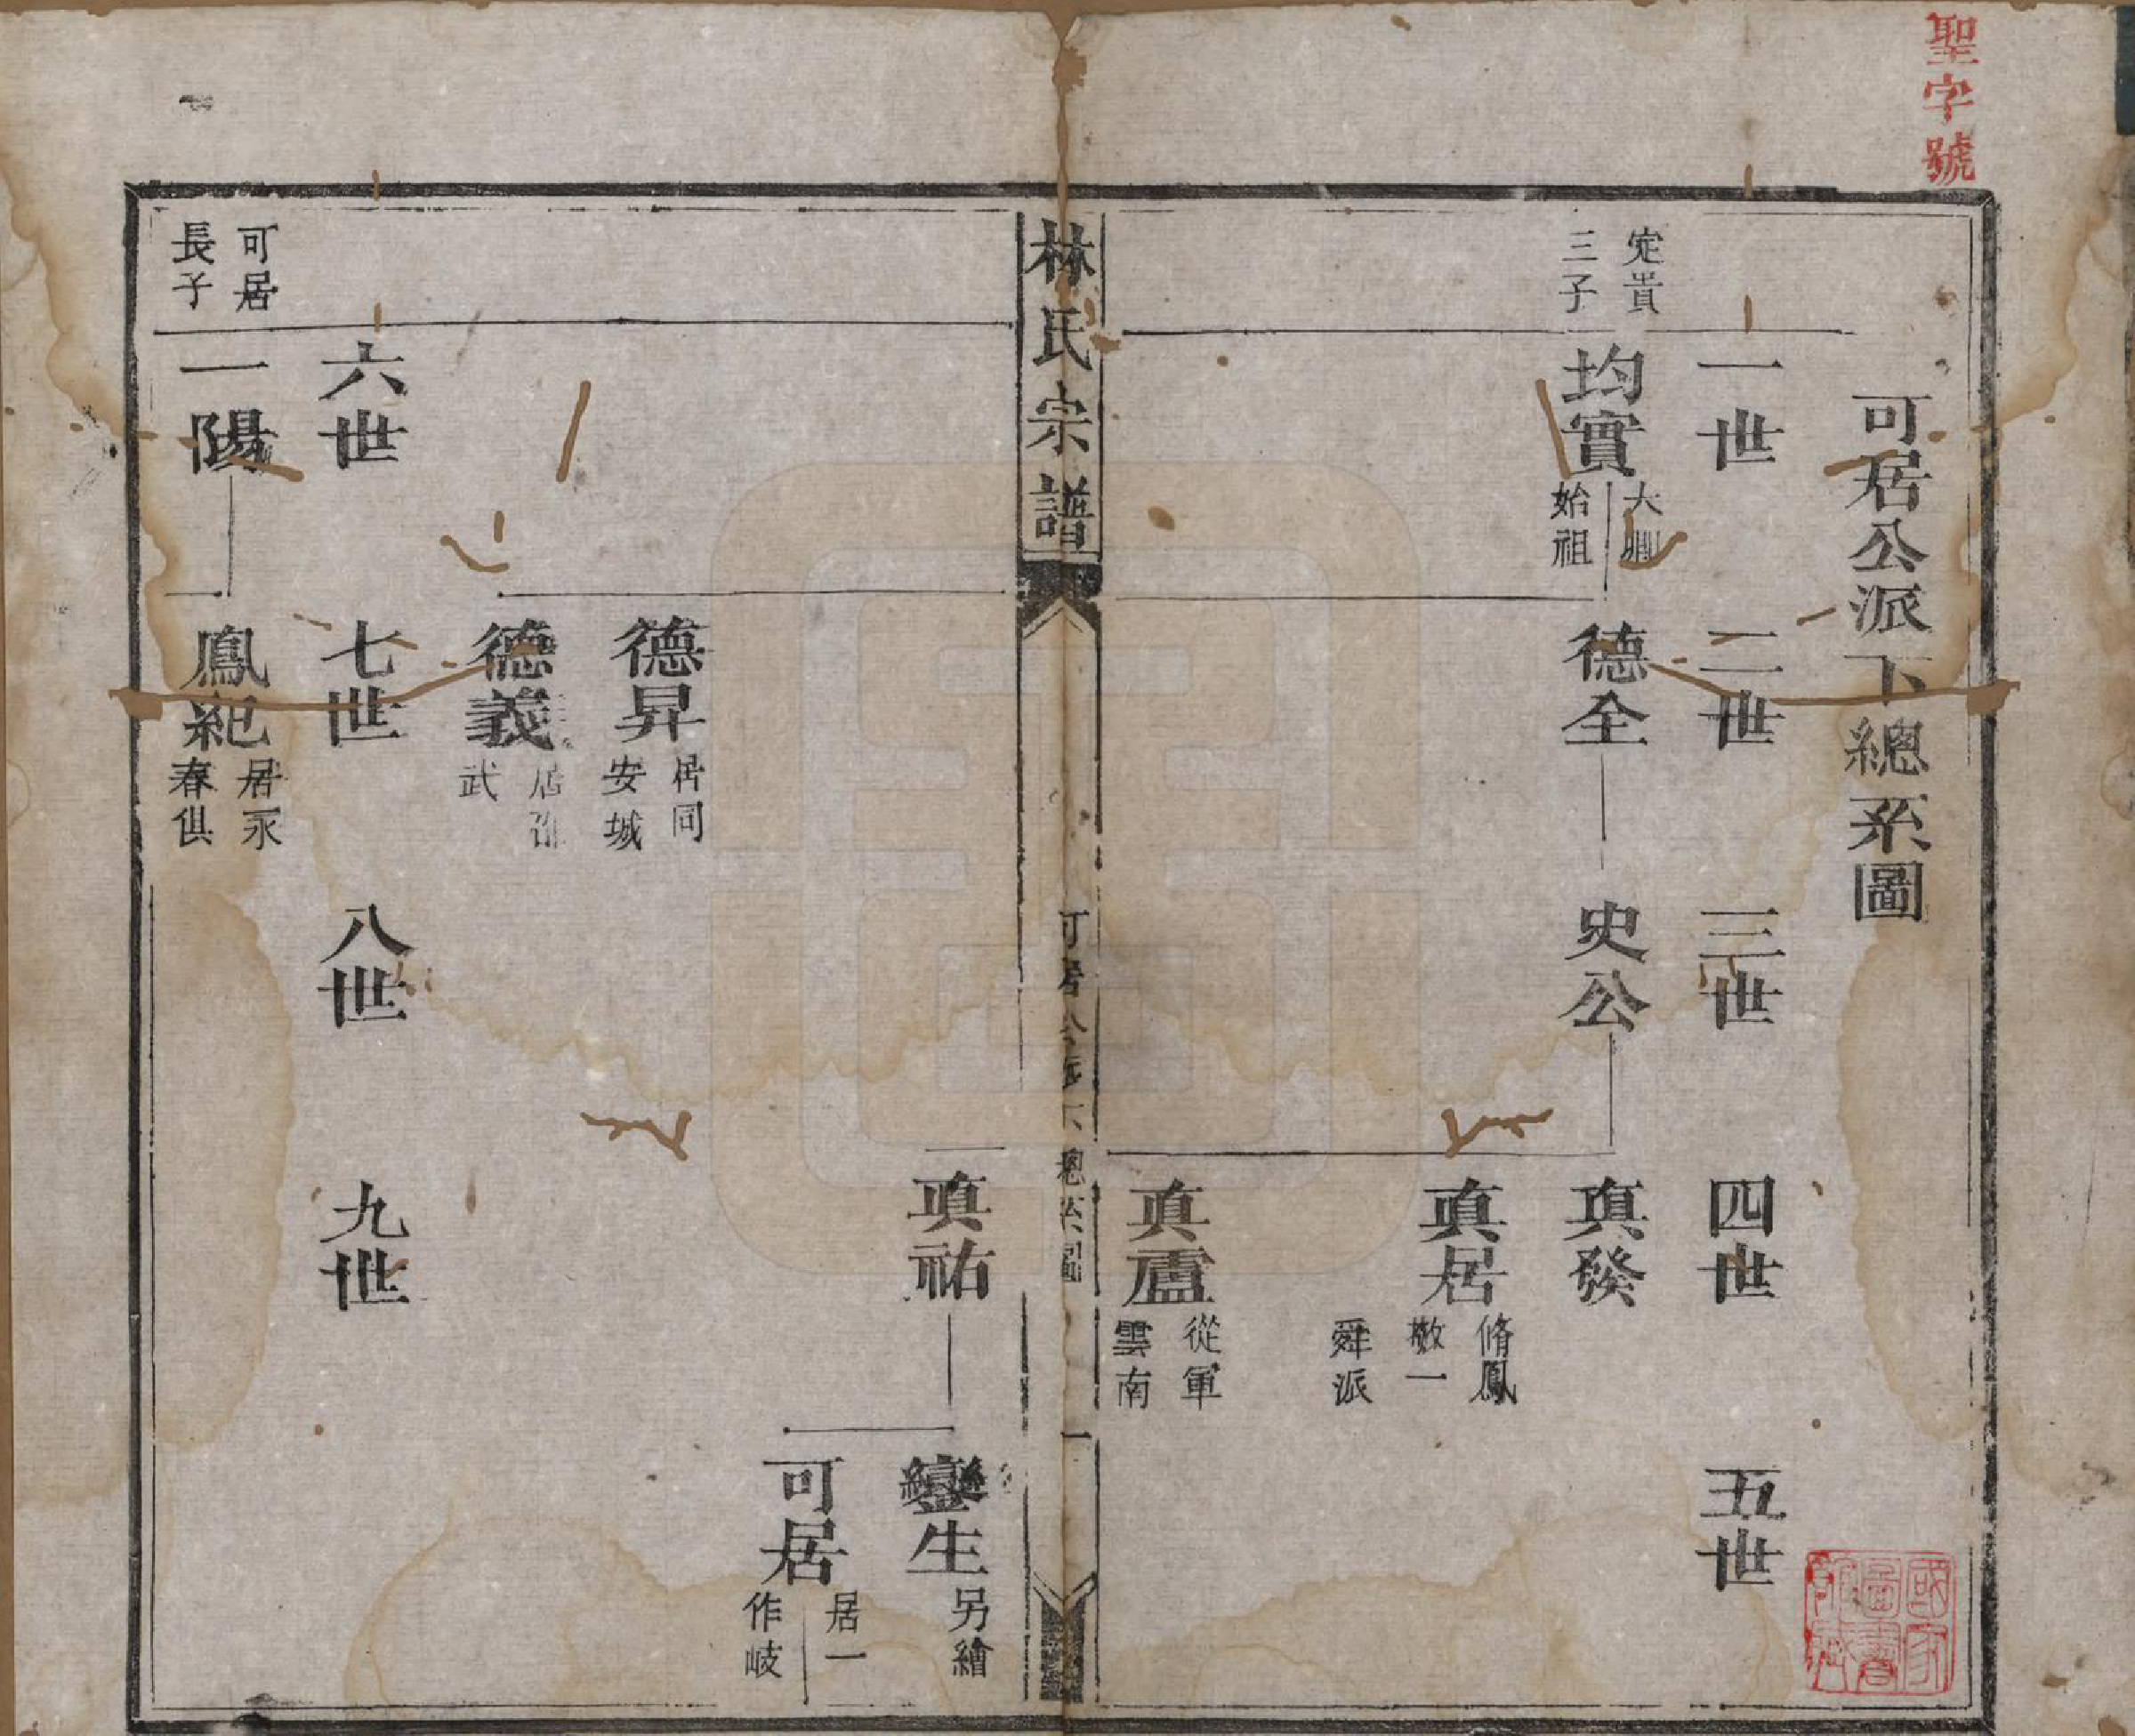 聖字號
可居公派下總系圖
一世
二世
三世
四世
五世
定貴
三子
均實
大
始祖
德全
史公
真發
真居
脩鳳
敬一
舜派
真盧
從軍
雲南
林氏宗譜
可居公派下總系圖
一
真祐
鑾生
另繪
可居
居一
作岐
德昇
居同
安城
德義
居邵
武
六世
七世
八世
九世
可居
長子
一陽
鳳紀
居永
春俱
國家
圖書
館藏